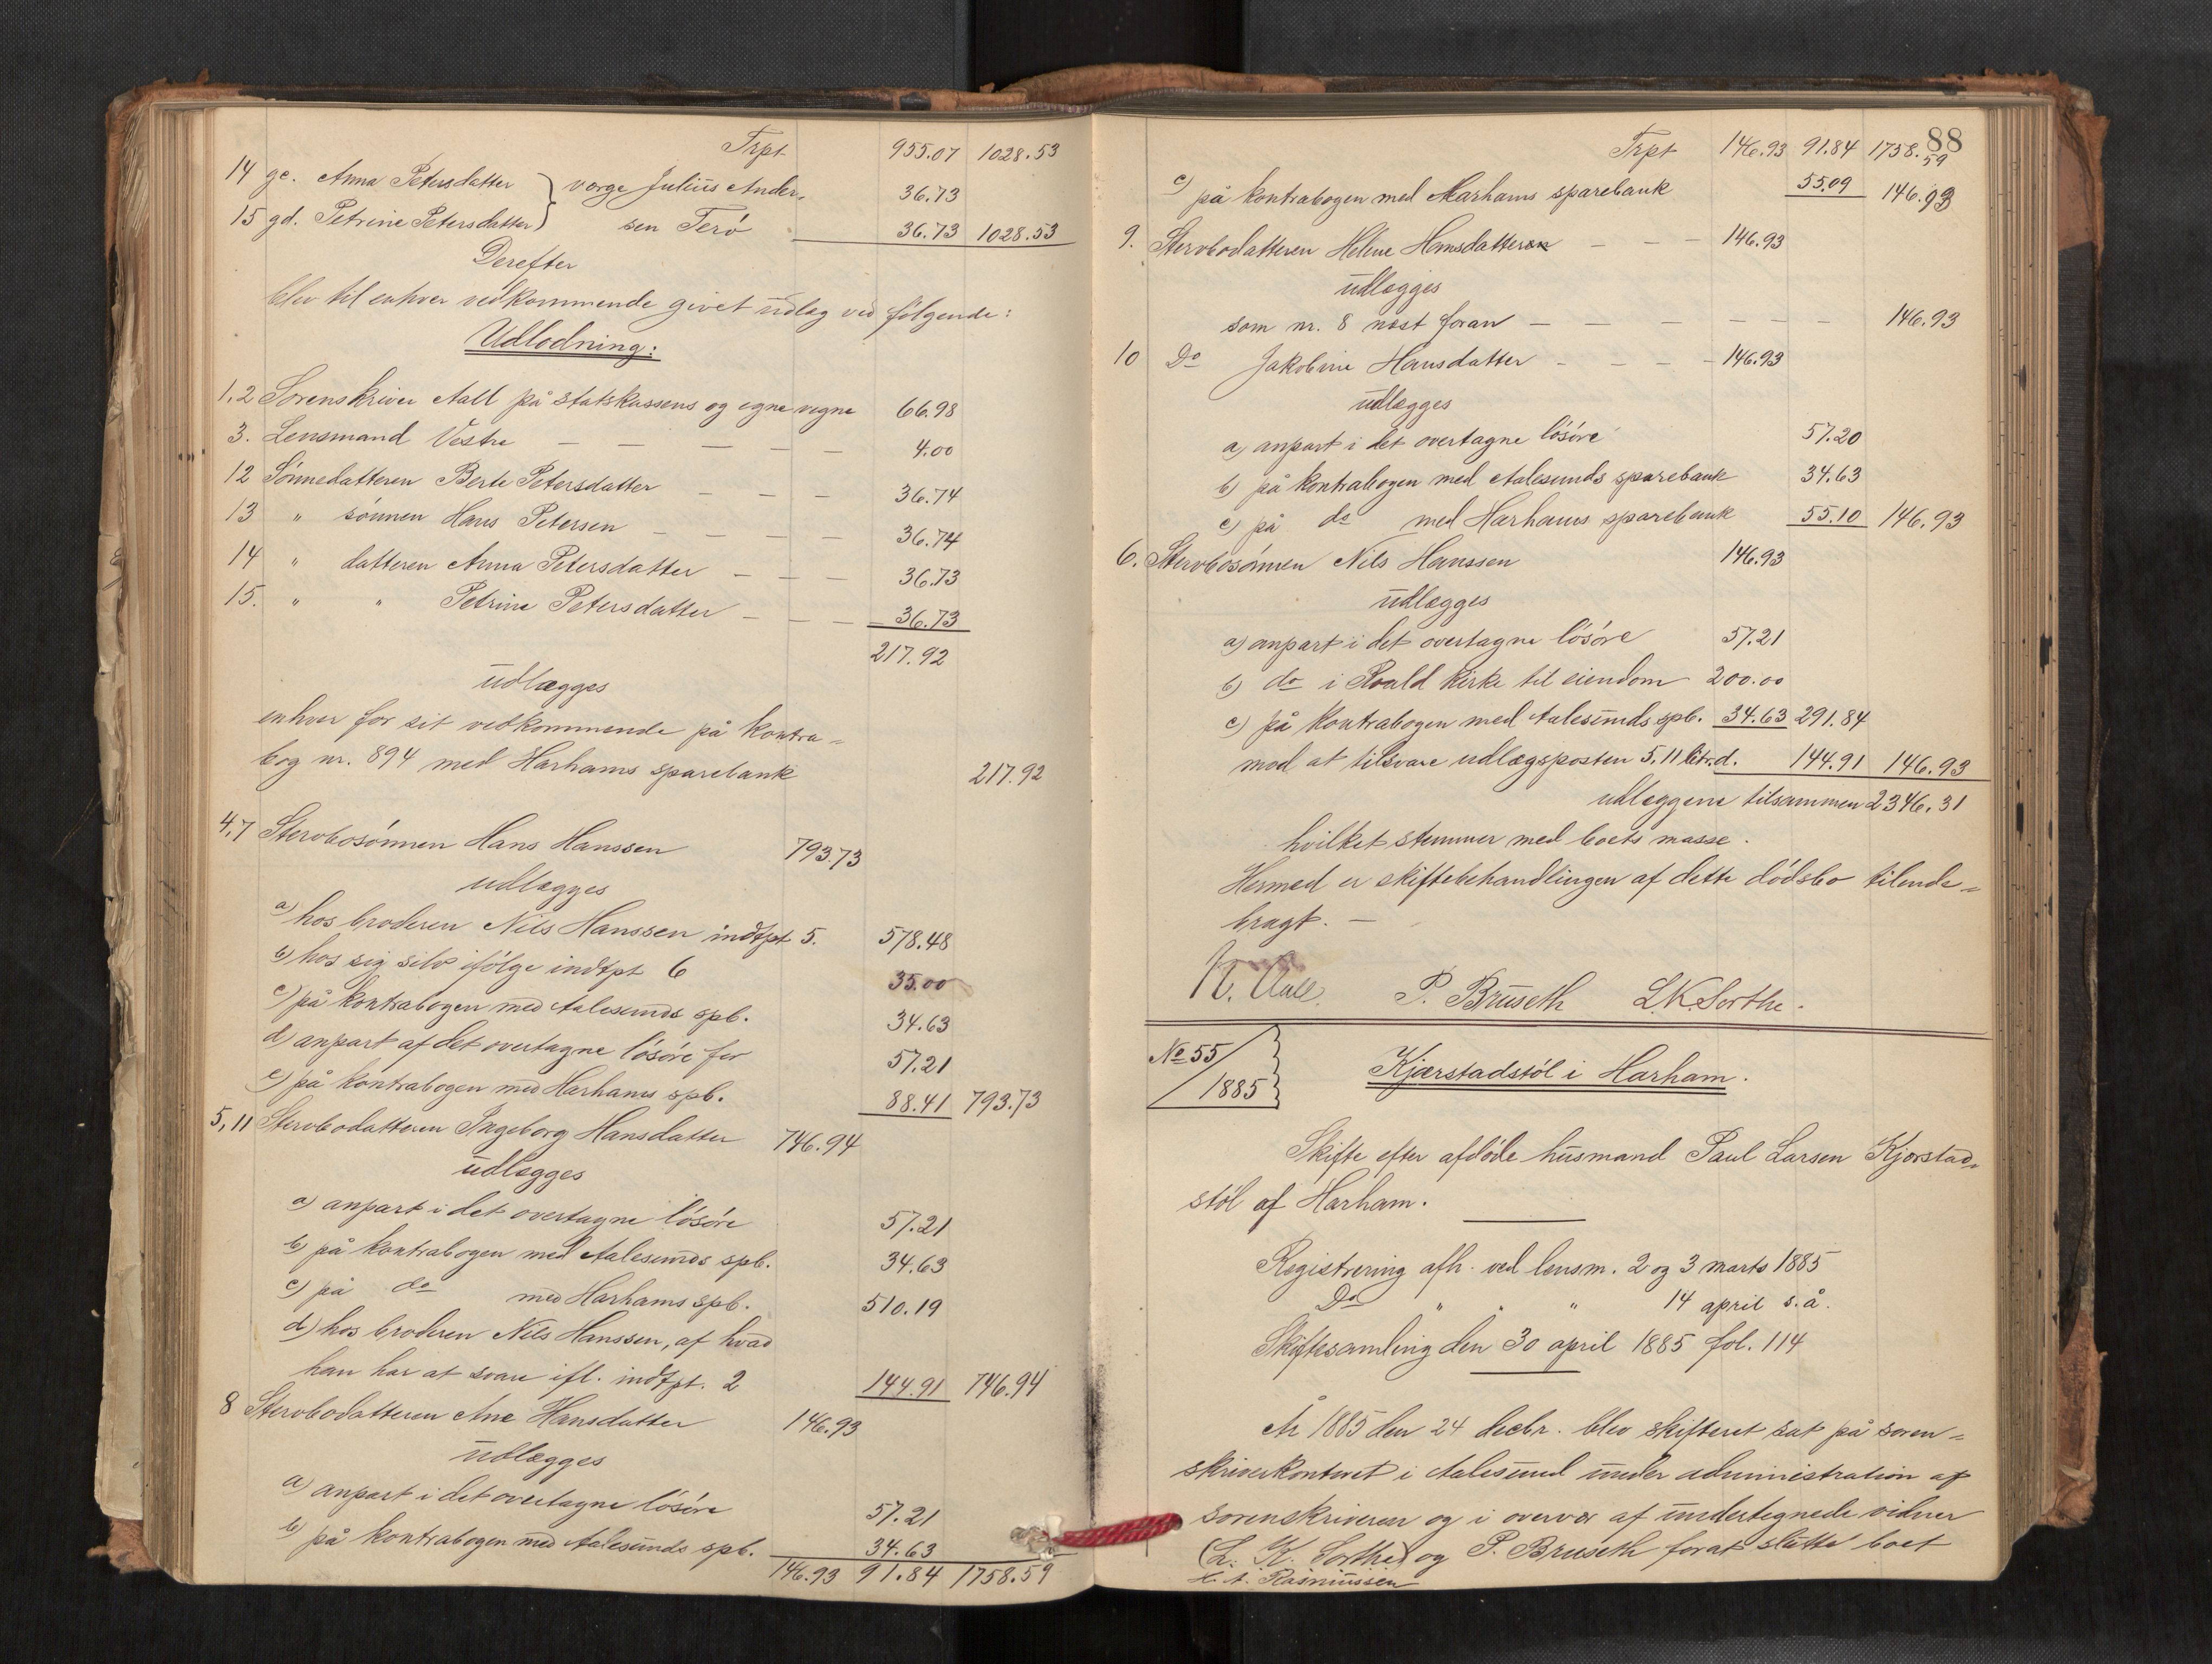 Trpt 955.07 1028.53
14 gc. Anna Petersdatter } værge Julius Ander- 36.73
15 gd. Petrine Petersdatter } sen Terö 36.73 1028.53
Derefter
blev til enhver vedkommende givet udlæg ved følgende:
Udlodning:
1,2 Sorenskriver Aall på statskassens og egne vegne 66.98
3. Lensmand Vestre — — — — — 4.00
12 Sönnedatteren Berte Petersdatter — — — 36.74
13 " sönnen Hans Petersen — — — — 36.74
14 " datteren Anna Petersdatter — — — 36.73
15. " " Petrine Petersdatter — — — 36.73
217.92
udlægges
enhver for sit vedkommende på kontra=
bog nr. 894 med Harhams sparebank 217.92
4,7 Stervbosönnen Hans Hanssen 793.73
udlægges
a) hos broderen Nils Hanssen indtpt 5. 578.48
b) hos sig selv ifölge indtpt 6 35.00
c) på kontrabogen med Aalesunds spb. 34.63
d) anpart af det overtagne lösöre for 57.21
e) på kontrabogen med Harhams spb. 88.41 793.73
5,11 Stervbodatteren Ingeborg Hansdatter 746.94
udlægges
a) anpart i det overtagne lösöre 57.21
b) på kontrabogen med Aalesunds spb. 34.63
c) på do med Harhams spb. 510.19
d) hos broderen Nils Hanssen, af hvad
han har at svare ifl. indtpt. 2 144.91 746.94
8 Stervbodatteren Ane Hansdatter 146.93
udlægges
a) anpart i det overtagne lösöre 57.21
b) på kontrabogen med Aalesunds spb. 34.63
146.93 91.84 1758.59
88
Trpt 146.93 91.84 1758.59
c) på kontrabogen med Harhams sparebank 55.09 146.93
9. Stervbodatteren Helene Hansdatteren — — — 146.93
udlægges
som nr. 8 næst foran — — — — — — 146.93
10 Do Jakobine Hansdatter — — — 146.93
udlægges
a) anpart i det overtagne lösöre 57.20
b) på kontrabogen med Aalesunds sparebank 34.63
c) på do med Harhams sparebank 55.10 146.93
6. Stervbosönnen Nils Hanssen 146.93
udlægges
a) anpart i det overtagne lösöre 57.21
b) do i Roald kirke til eiendom 200.00
c) på kontrabogen med Aalesunds spb. 34.63 291.84
mod at tilsvare udlægsposten 5,11 litr. d. 144.91 146.93
udlæggene tilsammen 2346.31
hvilket stemmer med boets masse.
Hermed er skiftebehandlingen af dette dödsbo tilende=
bragt. —
N. Aall. P. Bruseth L.K. Sorthe.
No 55/1885
Kjærstadstöl i Harham.
Skifte efter afdöde husmand Paul Larsen Kjærstad=
stöl af Harham.
Registrering afh. ved lensm. 2 og 3 marts 1885
Do " " " 14 april s.å.
Skiftesamling den 30 april 1885 fol. 114
År 1885 den 24 decbr. blev skifteret sat på soren=
skriverkontoret i Aalesund under administration af
sorenskriveren og i overvær af undertegnede vidner
(L. K. Sorthe) og P. Bruseth forat slutte boet
Rasmussen